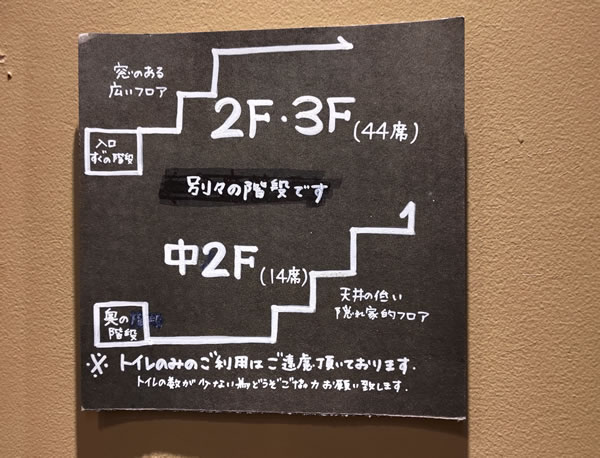 窓のある
広いフロア
2F・3F(44席)
入口
すぐの階段
別々の階段です
中2F(14席)
天井の低い
隠れ家的フロア
奥の階段
階段
※ トイレのみのご利用はご遠慮頂いております.
トイレの数が少ない為どうぞご協力お願い致します.